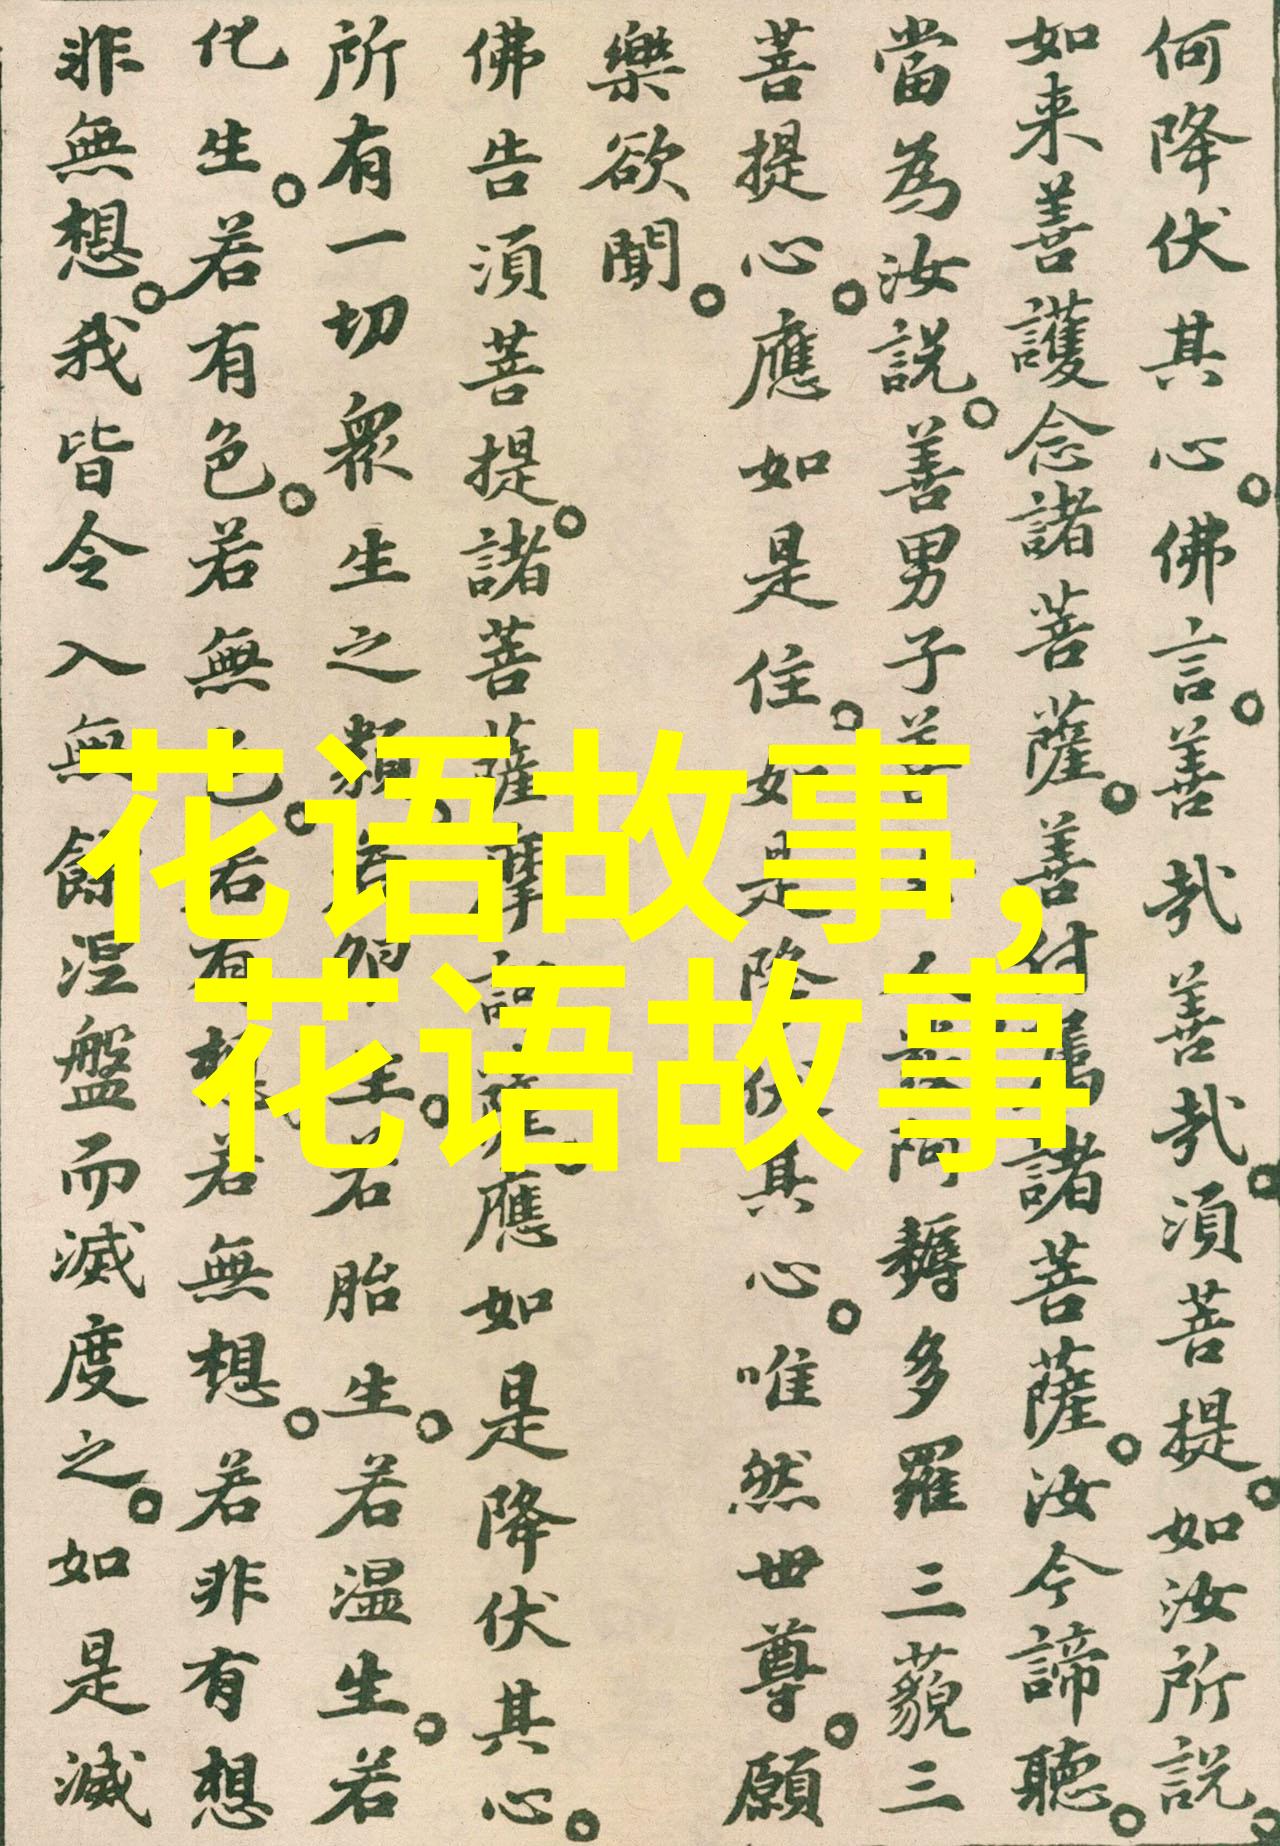 何降伏其心佛言善哉善哉須菩提如汝所説
如来善護念諸菩薩善付属諸菩薩汝今諦聽
當為汝説善男子善人阿耨多羅三藐三
菩提心應如是住如是降伏其心唯然世尊願
樂欲聞
佛告須菩提諸菩薩摩訶薩應如是降伏其心
所有一切衆生之類若卵生若胎生若温生若
化生若有色若無色若有想若無想若非有想
非無想我皆令入無餘涅盤而滅度之如是滅
花语故事,
花语故事